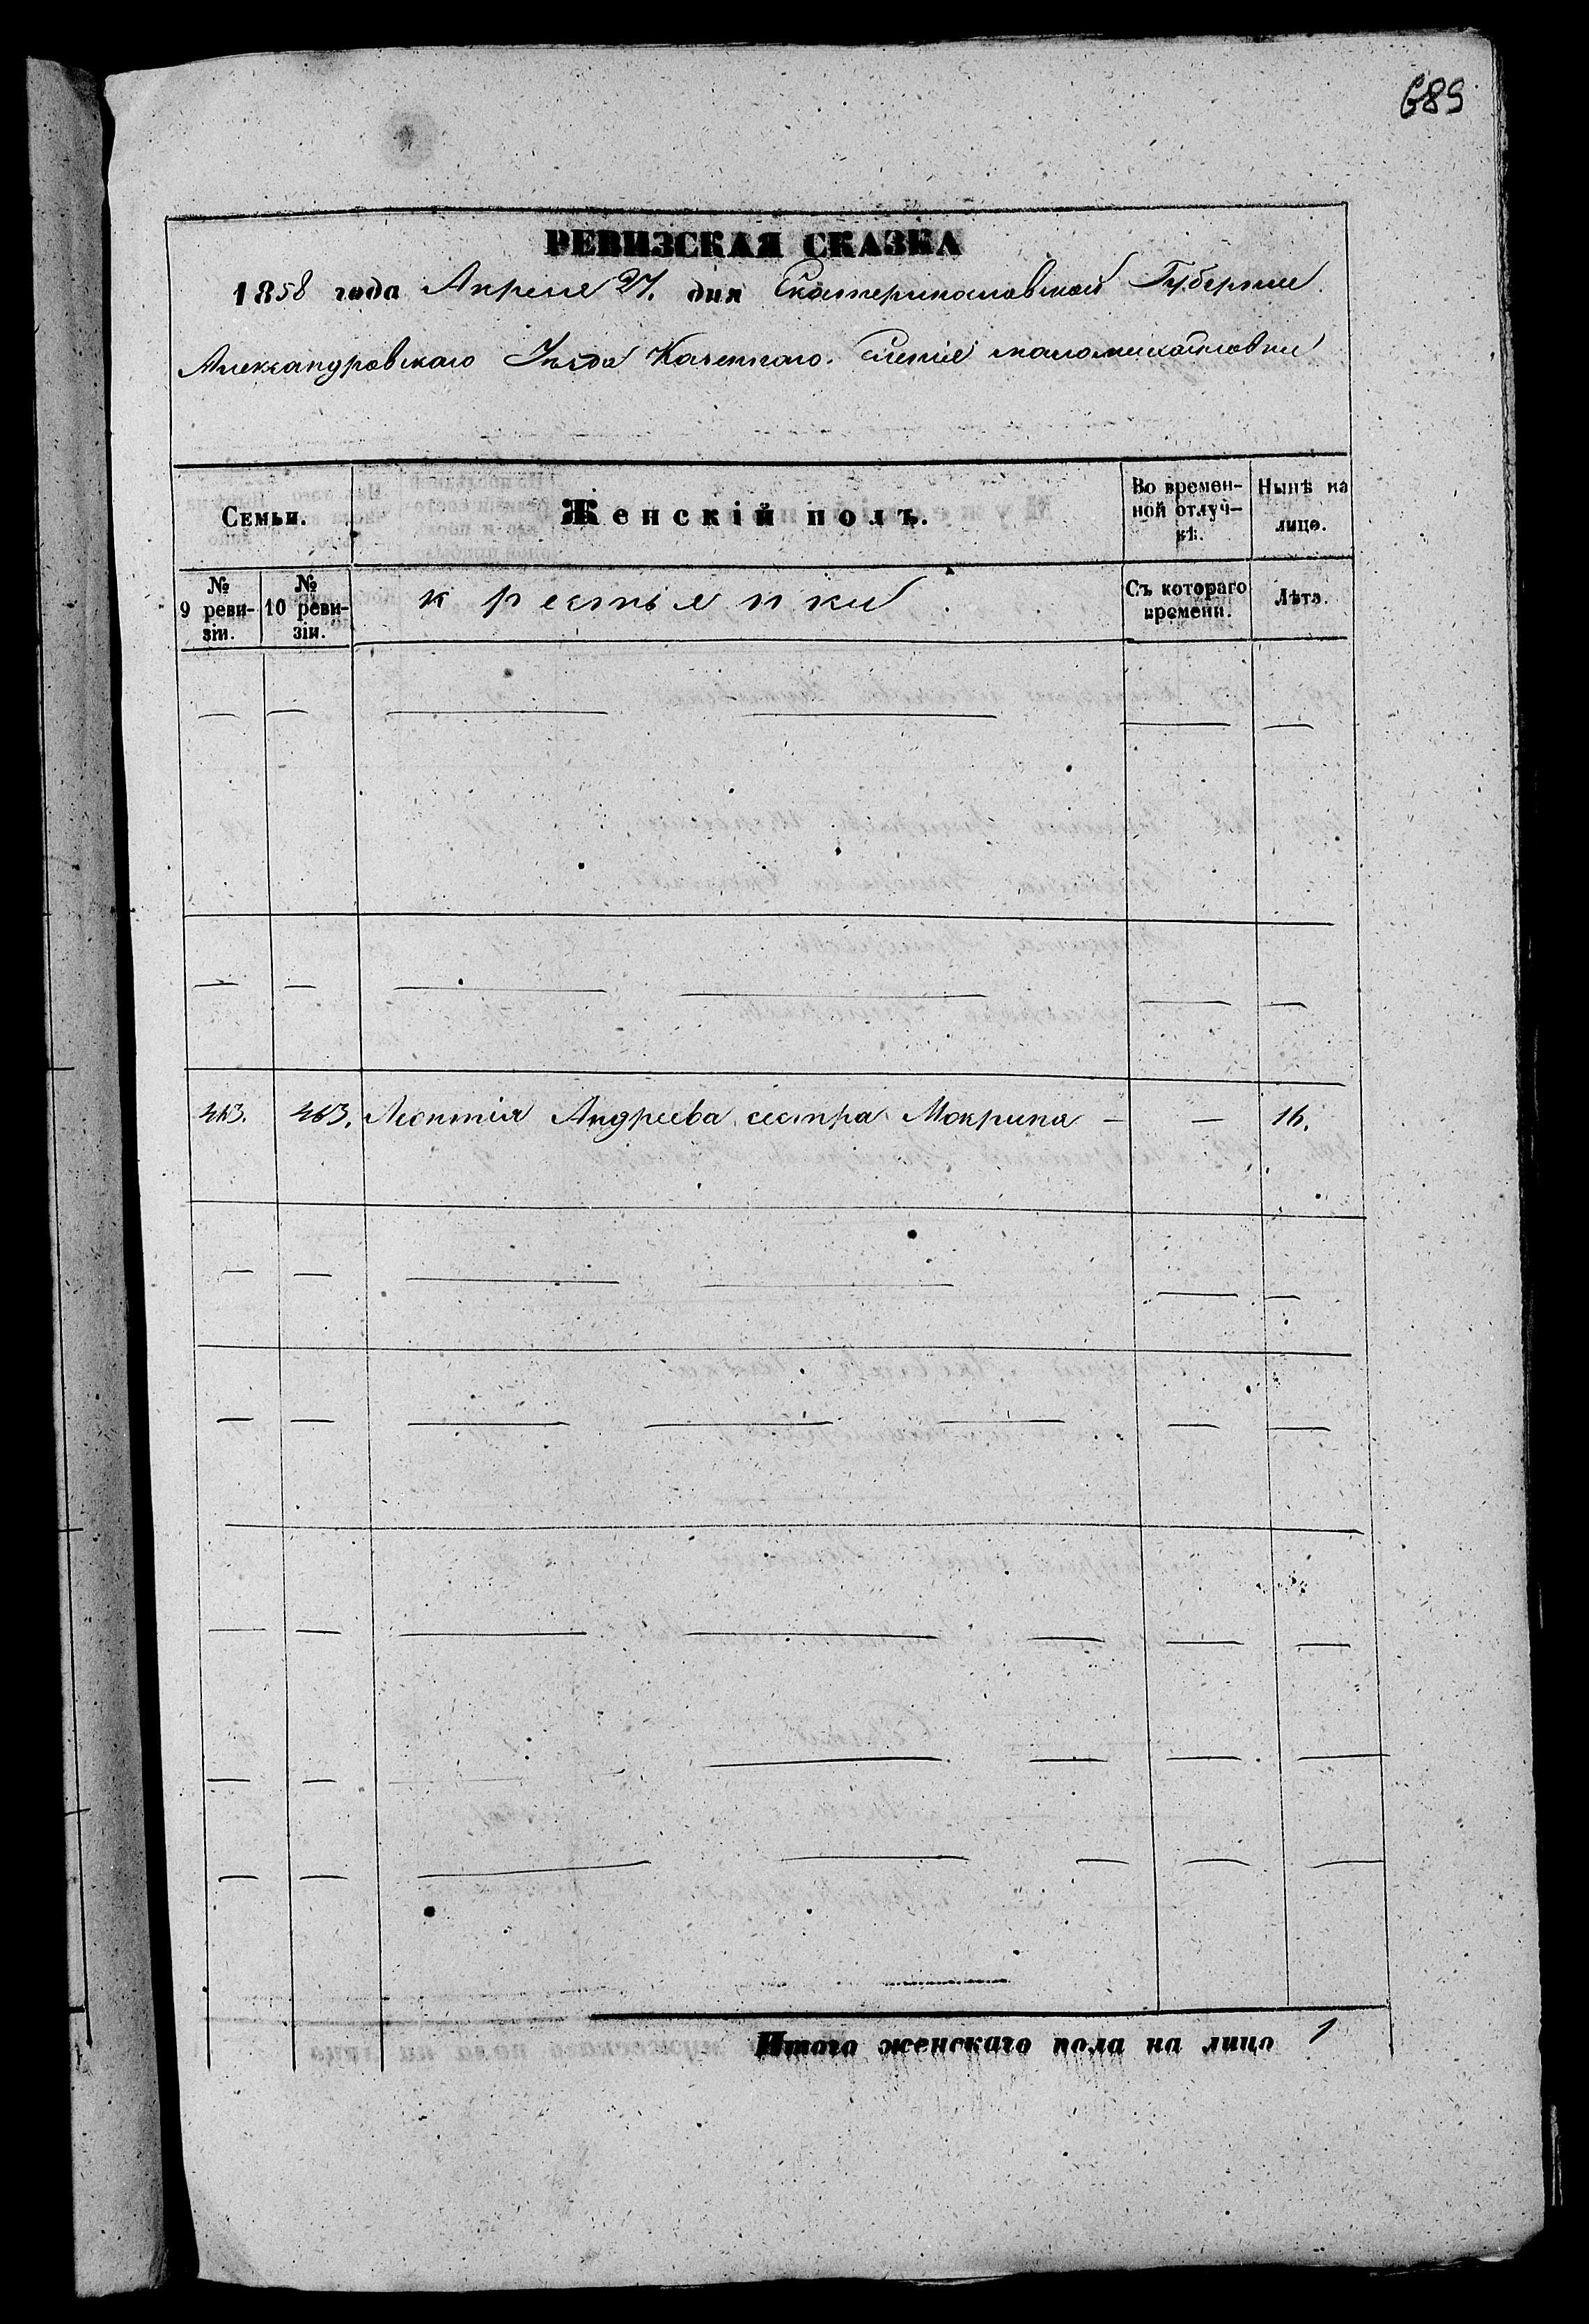 689
РЕВИЗСКАЯ СКАЗКА
1858 года Апреля 27. дня Екатеринославской Губернии
Александровскаго Уѣзда Казеннаго. Селенія маломихайловки
Семьи.
Женскій полъ.
Во времен-
ной отлуч-
кѣ.
Нынѣ на
лицо.
№
9 реви-
зіи.
№
10 реви-
зіи.
крестьянки
Съ котораго
времени.
Лѣта.
463. 463. Леонтія Андреева сестра Мокрина — — 16.
Итого женскаго пола на лицо 1